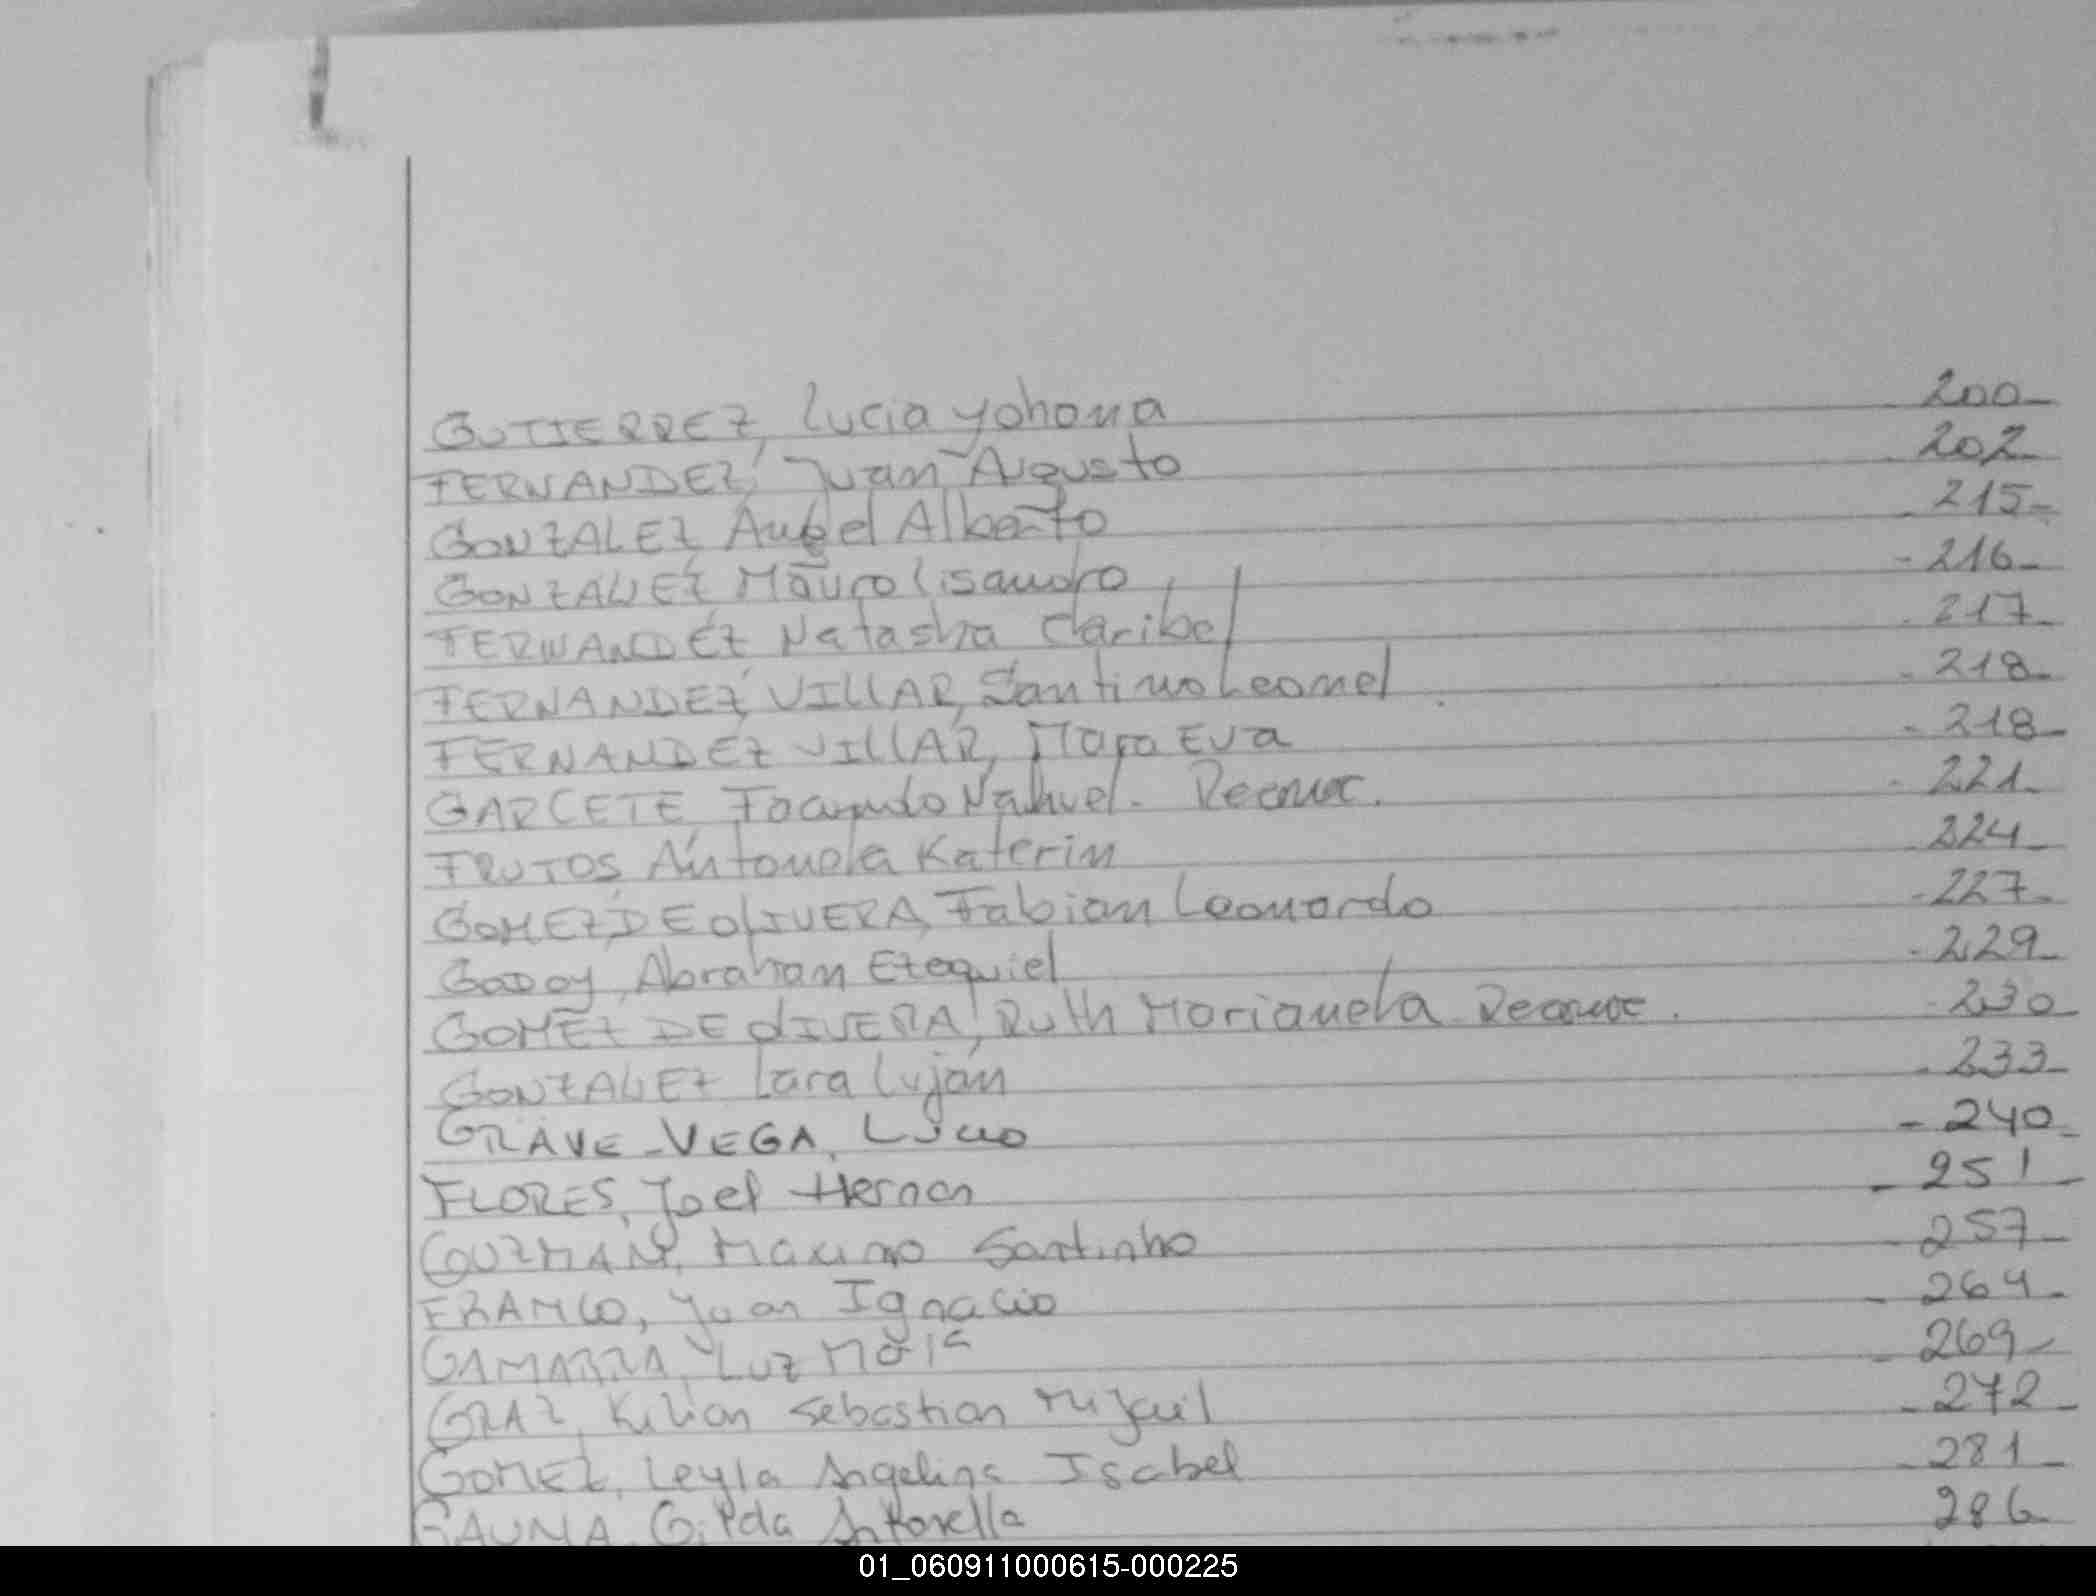 GUTIERREZ, Lucia Yohana 200-
FERNANDEZ, Juan Augusto 202
GONZALEZ Angel Alberto 215-
GONZALEZ Mauro Lisandro -216-
FERNANDEZ Natasha Claribel 217-
FERNANDEZ VILLAR, Santino Leonel -218-
FERNANDEZ VILLAR, Mara Eva -218-
GARCETE, Facundo Nahuel - Reconoc. -221-
FRUTOS, Antonela Katerin 224-
GOMEZ DE OLIVERA, Fabian Leonardo -227-
GODOY, Abraham Ezequiel -229-
GOMEZ DE OLIVERA, Ruth Marianela Reconoc. -230
GONZALEZ Lara Luján -233-
GRAVE-VEGA, Lucio -240-
FLORES, Joel Hernan -251-
GUZMAN, Maximo Santinho 257-
FRANCO, Juan Ignacio -264-
GAMARRA, Luz Mª -269-
GRAZ, Kilian Sebastian Mijail -272-
GOMEZ, Leyla Angelina Isabel -281-
GAUNA, Gilda Antonella 286
01_060911000615-000225